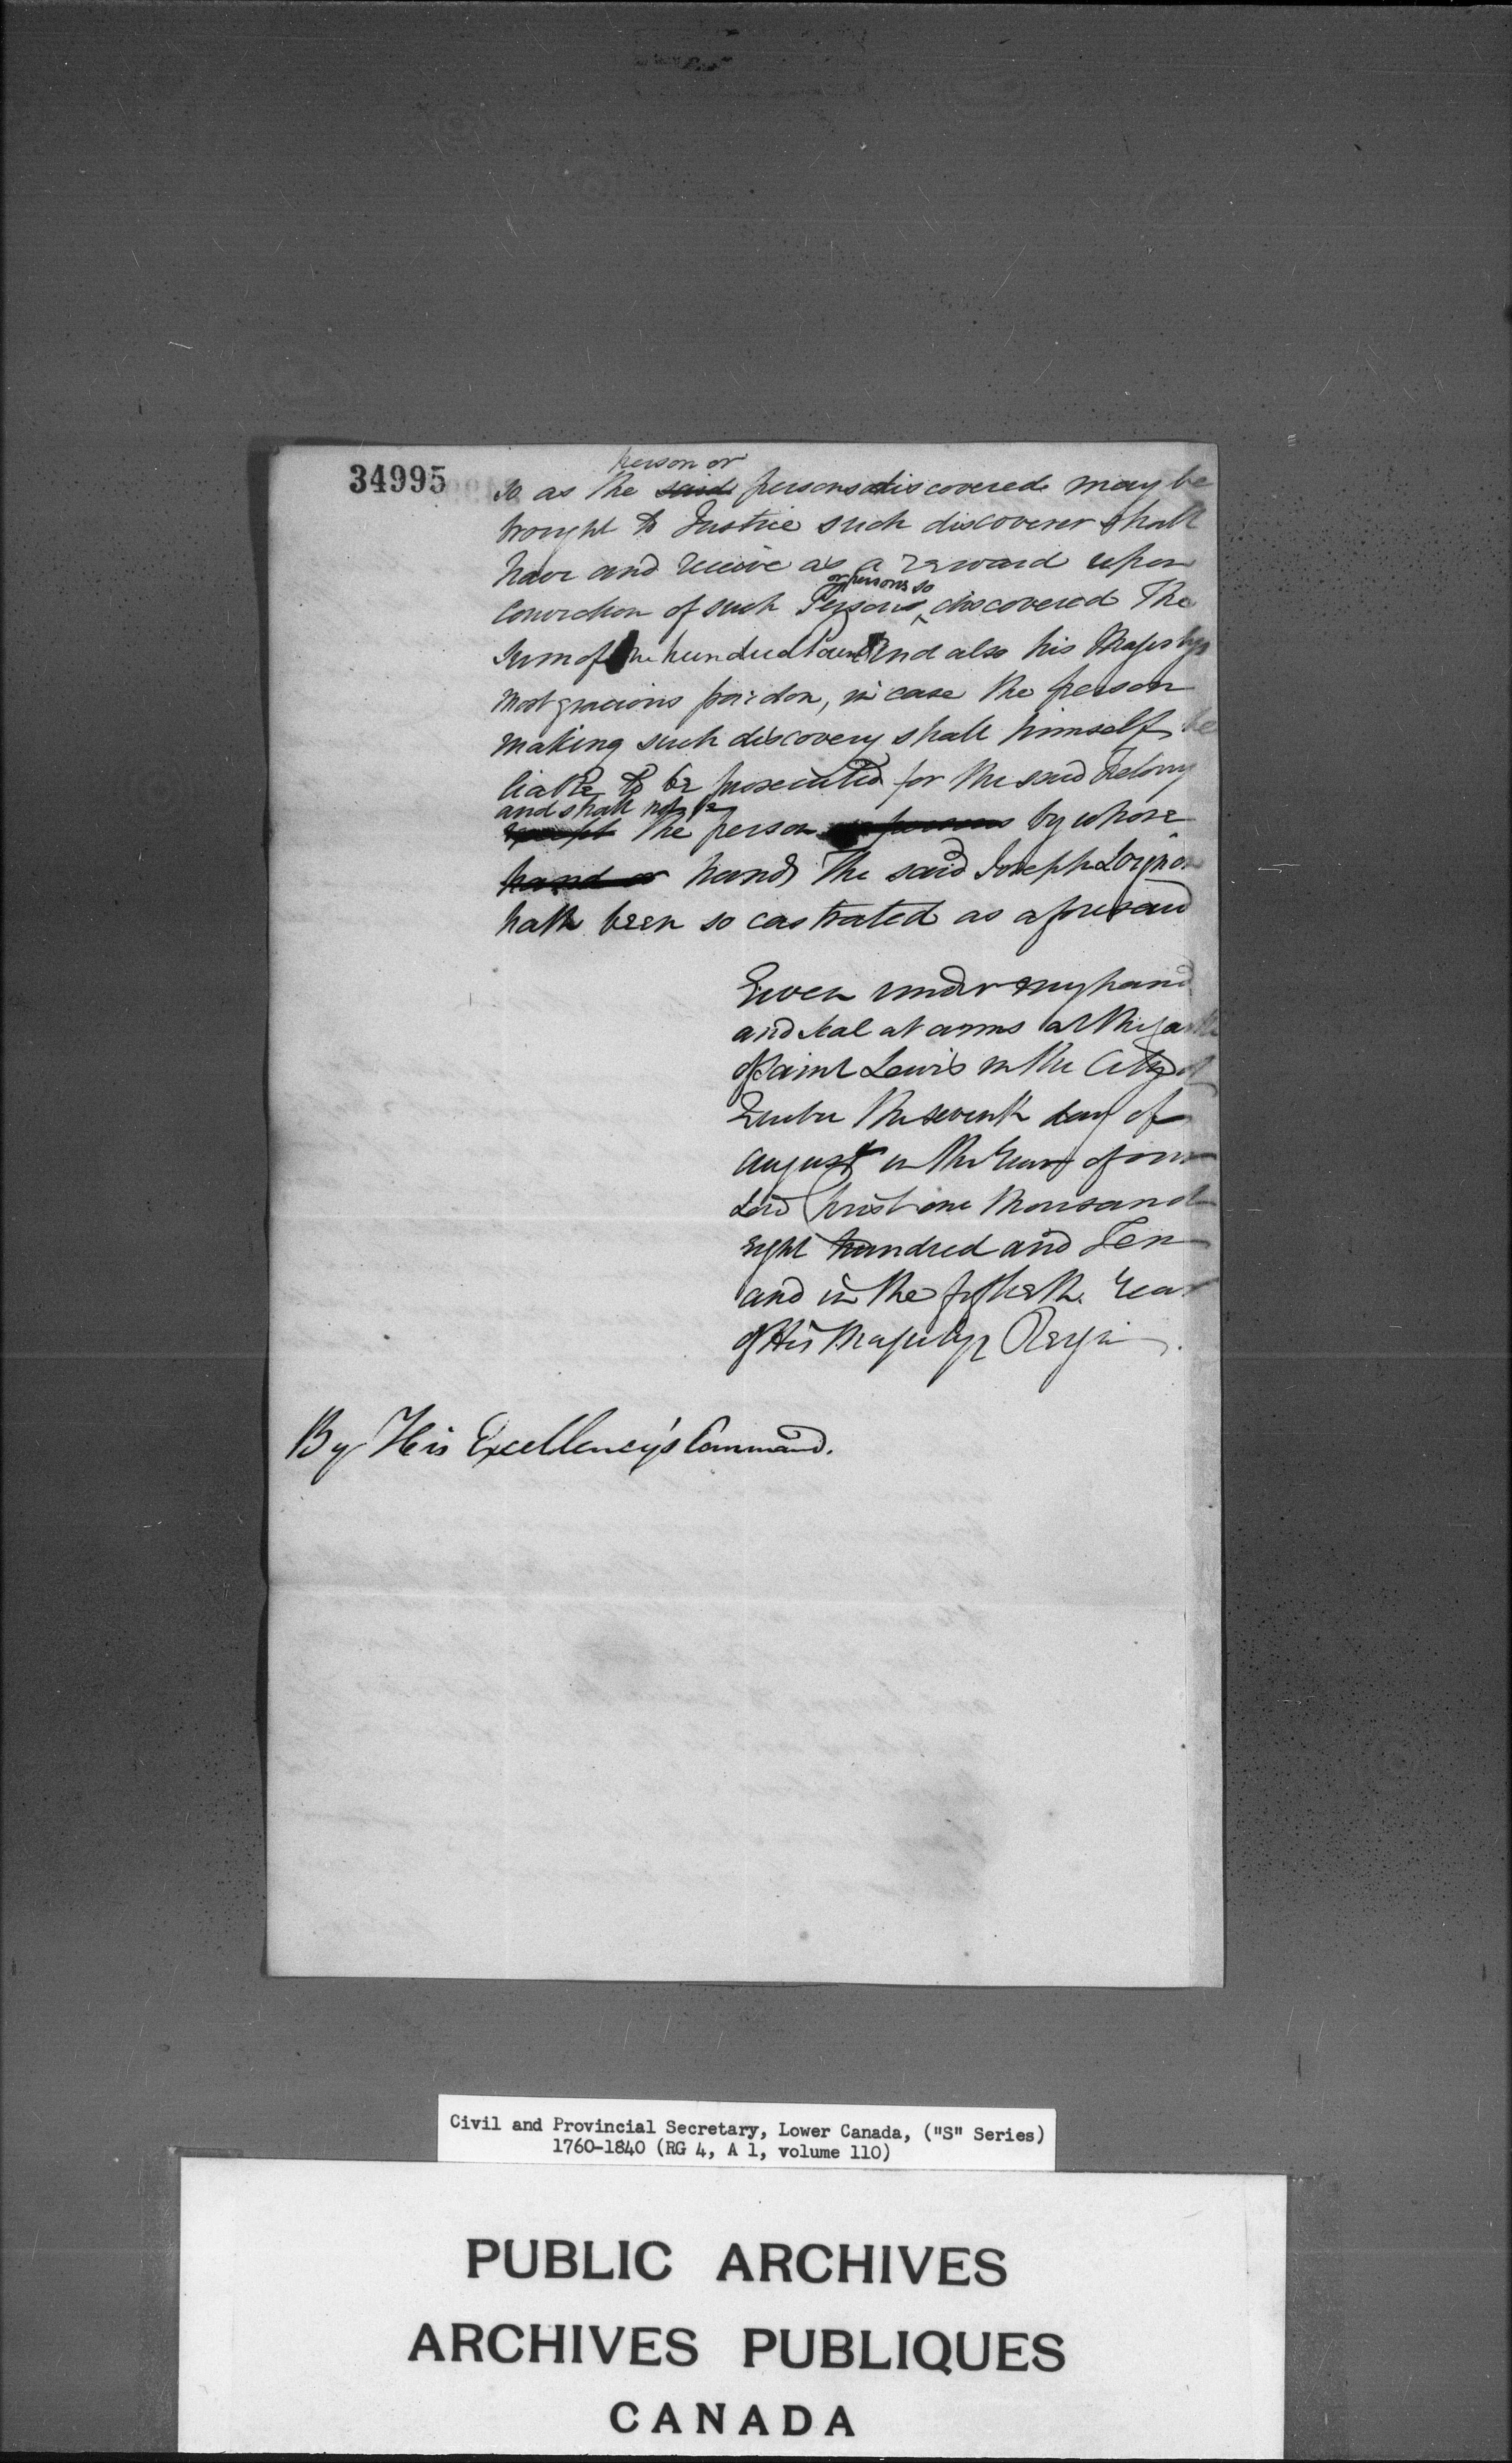 34995
person or
so as the said persons discovered may be
brought to Justice such discoverer shall
have and receive as a reward upon
or persons so
Conviction of such Person discovered The
Sum of One hundred Pounds And also his Majestys
most gracious pardon, in case the person
making such discovery shall himself be
liable to be prosecuted for the said Felony
and shall not be
except the person or persons by whose
hand or hands The said Joseph
hath been so castrated as aforesaid
Given under my hand
and seal at arms at the
of Saint Lewis in the City of
Quebec the seventh day of
August in the Year of our
Lord Christ one thousand
eight hundred and Ten
and in the fiftieth Year
of His Majestys Reign.
By His Excellency's Command.
Civil and Provincial Secretary, Lower Canada, ("S" Series)
1760-1840 (RG 4, A 1, volume 110)
PUBLIC ARCHIVES
ARCHIVES PUBLIQUES
CANADA